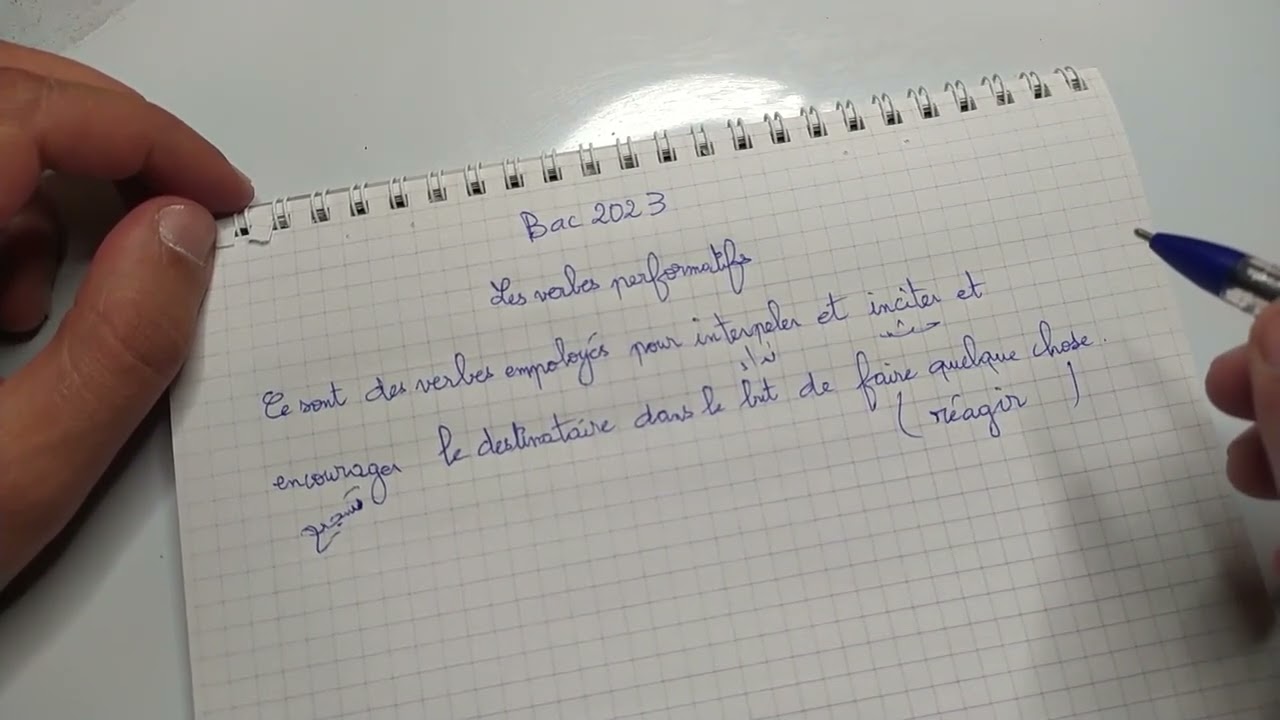 Bac 2023
Les verbes performatifs
Ce sont des verbes employés pour interpeler et inciter et
encourager le destinataire dans le but de faire quelque chose.
( réagir )